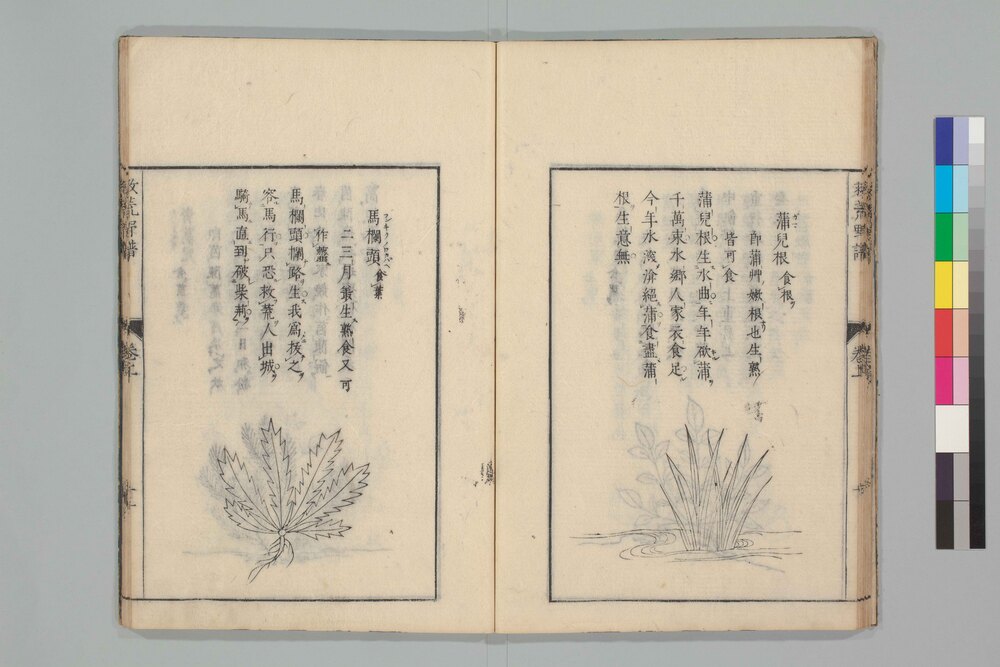 蒲兒根 食根
即蒲艸嫩根也生熟
皆可食
蒲兒根生水曲年年欲蒲
千萬束水鄉人家衣食足
今年水潦淪絕蒲食盡蒲
根生意無
馬欄頭 食葉
二三月叢生熟食又可
作虀
馬欄頭攔路生我為拔之
容馬行只恐救荒人出城
騎馬直到破柴荊
救荒野譜